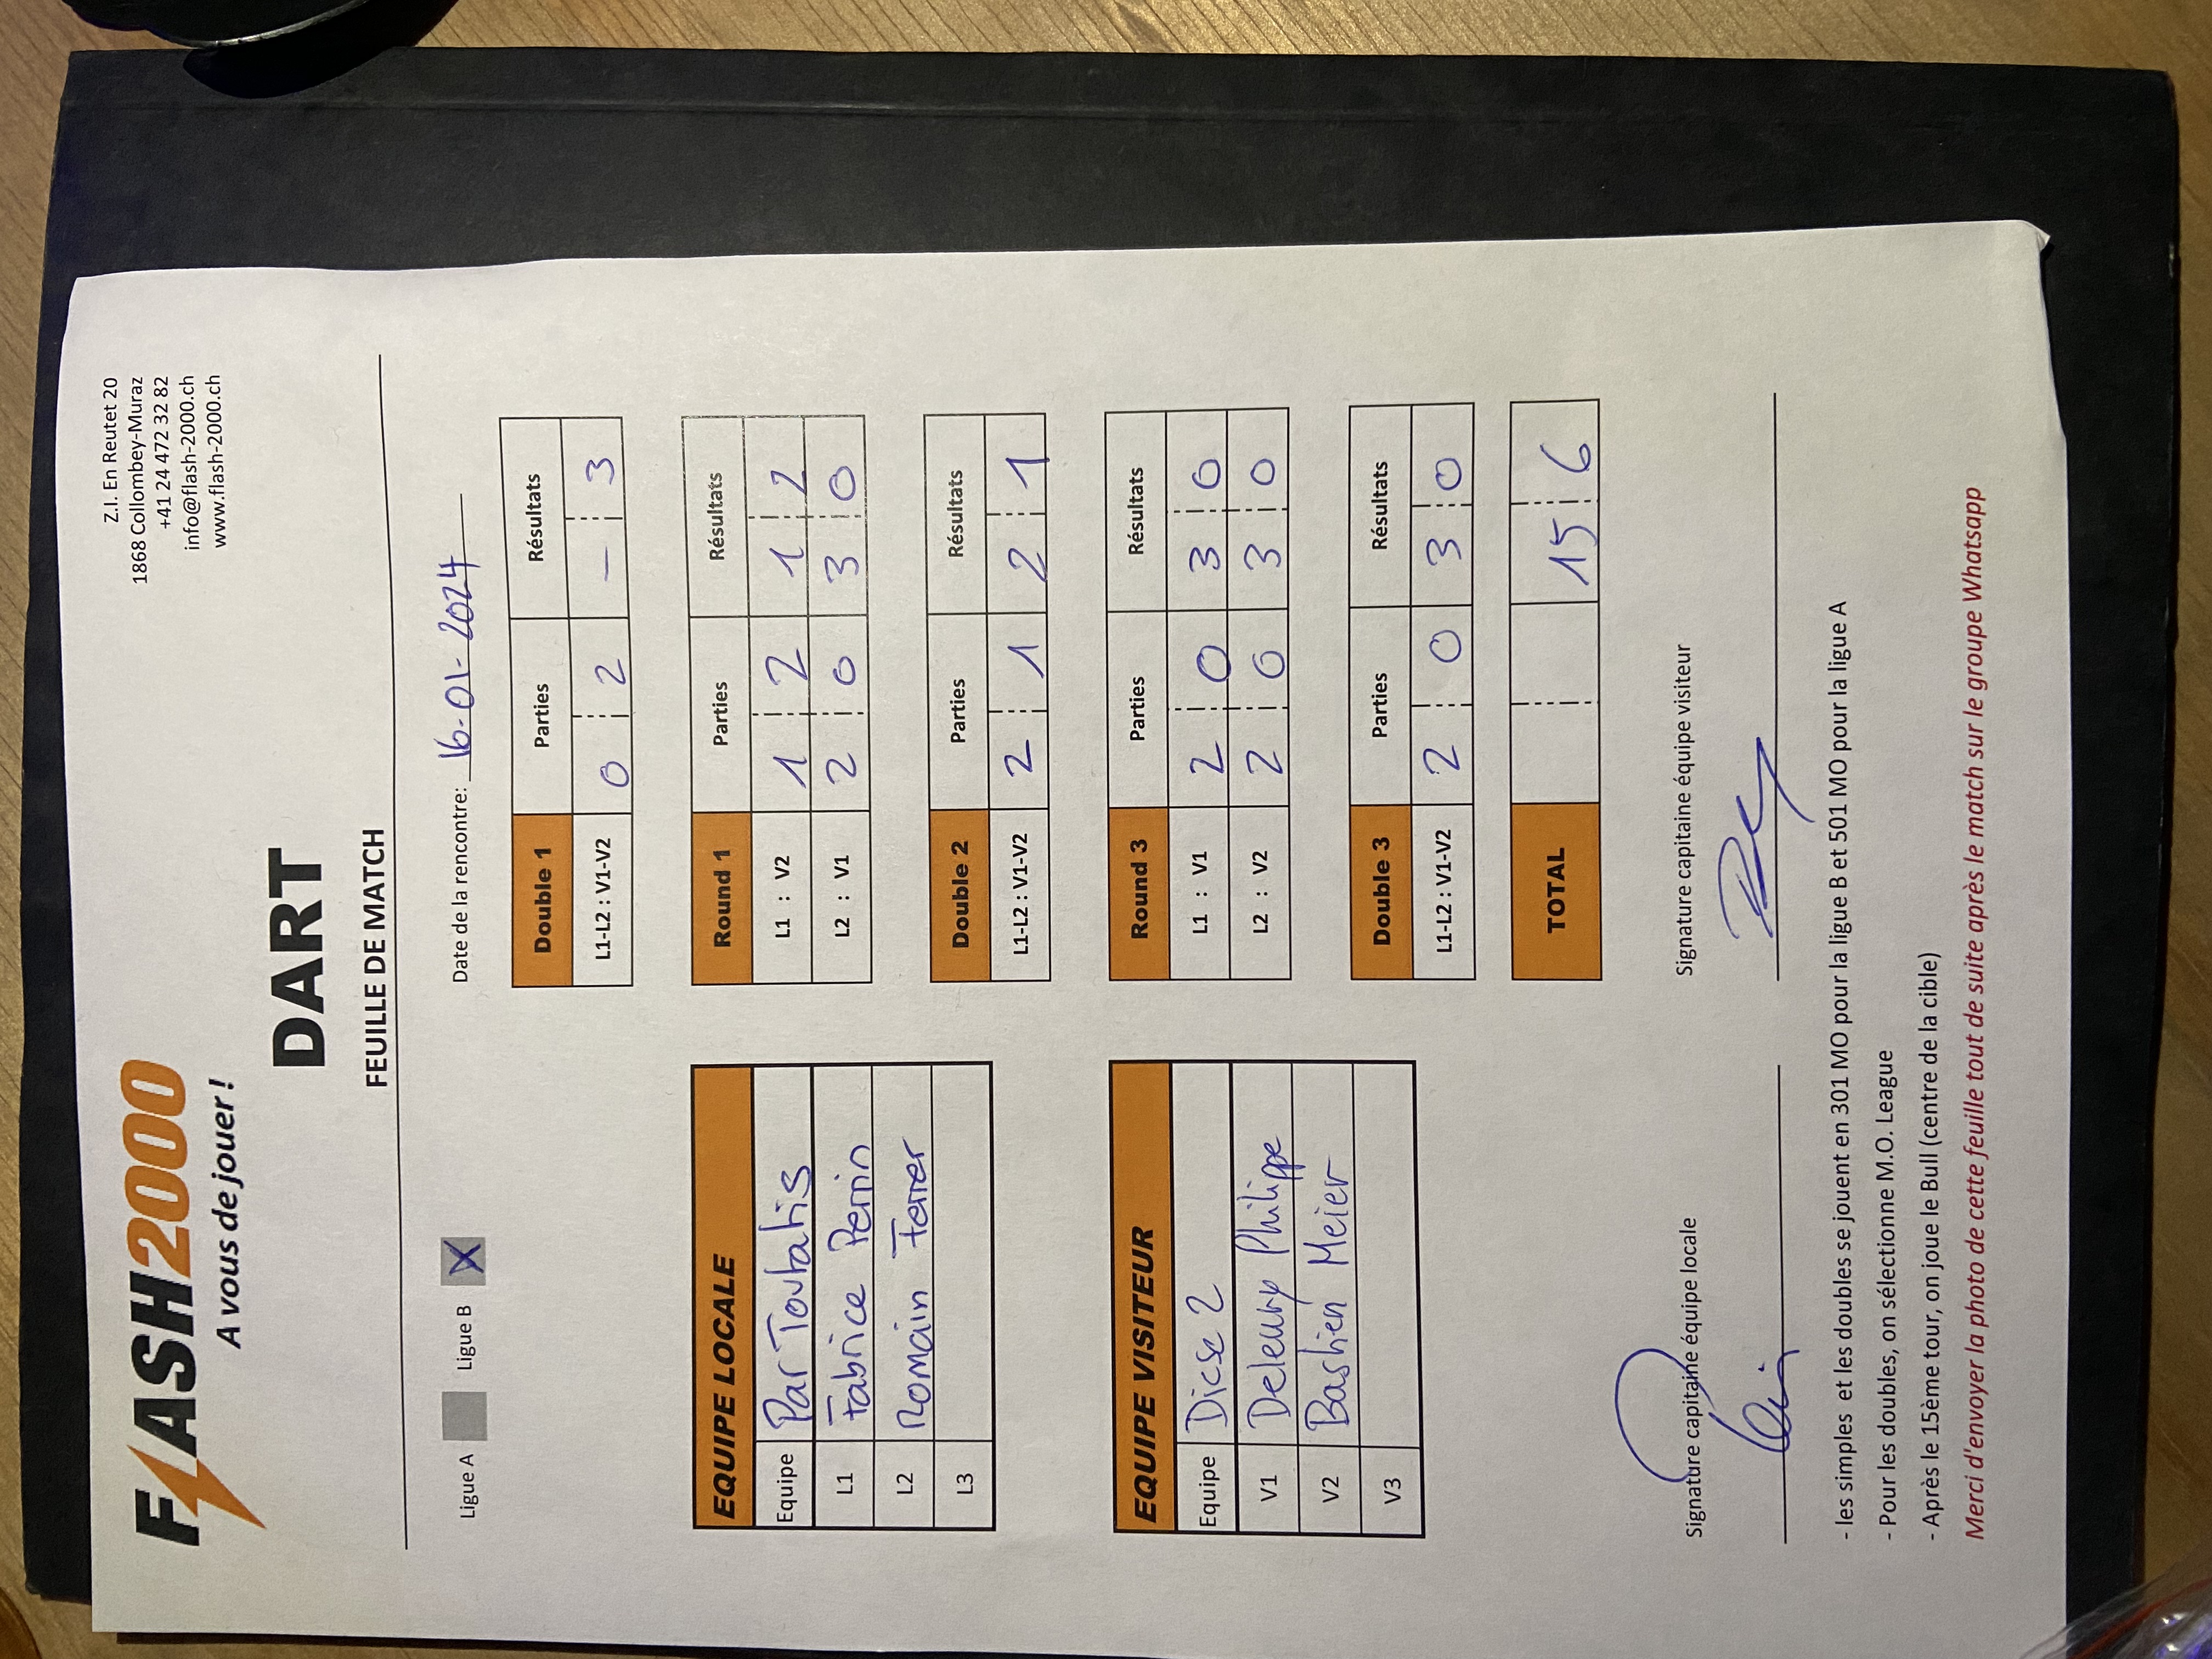 FLASH2000
A vous de jouer !
Z.I. En Reutet 20
1868 Collombey-Muraz
+41 24 472 32 82
info@flash-2000.ch
www.flash-2000.ch
DART
FEUILLE DE MATCH
Ligue A Ligue B X Date de la rencontre: 16-01-2024
Double 1 Parties Résultats
L1-L2 : V1-V2 0 2 – 3
EQUIPE LOCALE
Equipe Par Toutatis
L1 Fabrice Perrin
L2 Romain Ferrer
L3
Round 1 Parties Résultats
L1 : V2 1 2 1 2
L2 : V1 2 0 3 0
Double 2 Parties Résultats
L1-L2 : V1-V2 2 1 2 1
EQUIPE VISITEUR
Equipe Dicse 2
V1 Deleury Philippe
V2 Bastien Meier
V3
Round 3 Parties Résultats
L1 : V1 2 0 3 0
L2 : V2 2 0 3 0
Double 3 Parties Résultats
L1-L2 : V1-V2 2 0 3 0
TOTAL 15 6
Signature capitaine équipe locale Signature capitaine équipe visiteur
- les simples et les doubles se jouent en 301 MO pour la ligue B et 501 MO pour la ligue A
- Pour les doubles, on sélectionne M.O. League
- Après le 15ème tour, on joue le Bull (centre de la cible)
Merci d'envoyer la photo de cette feuille tout de suite après le match sur le groupe Whatsapp